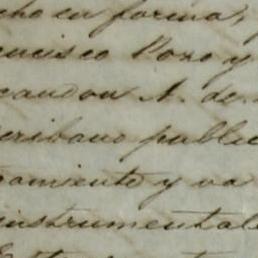 cho en forma,
ncisco Pozo y
candon A. de
cribano public
samiento y va
instrumental